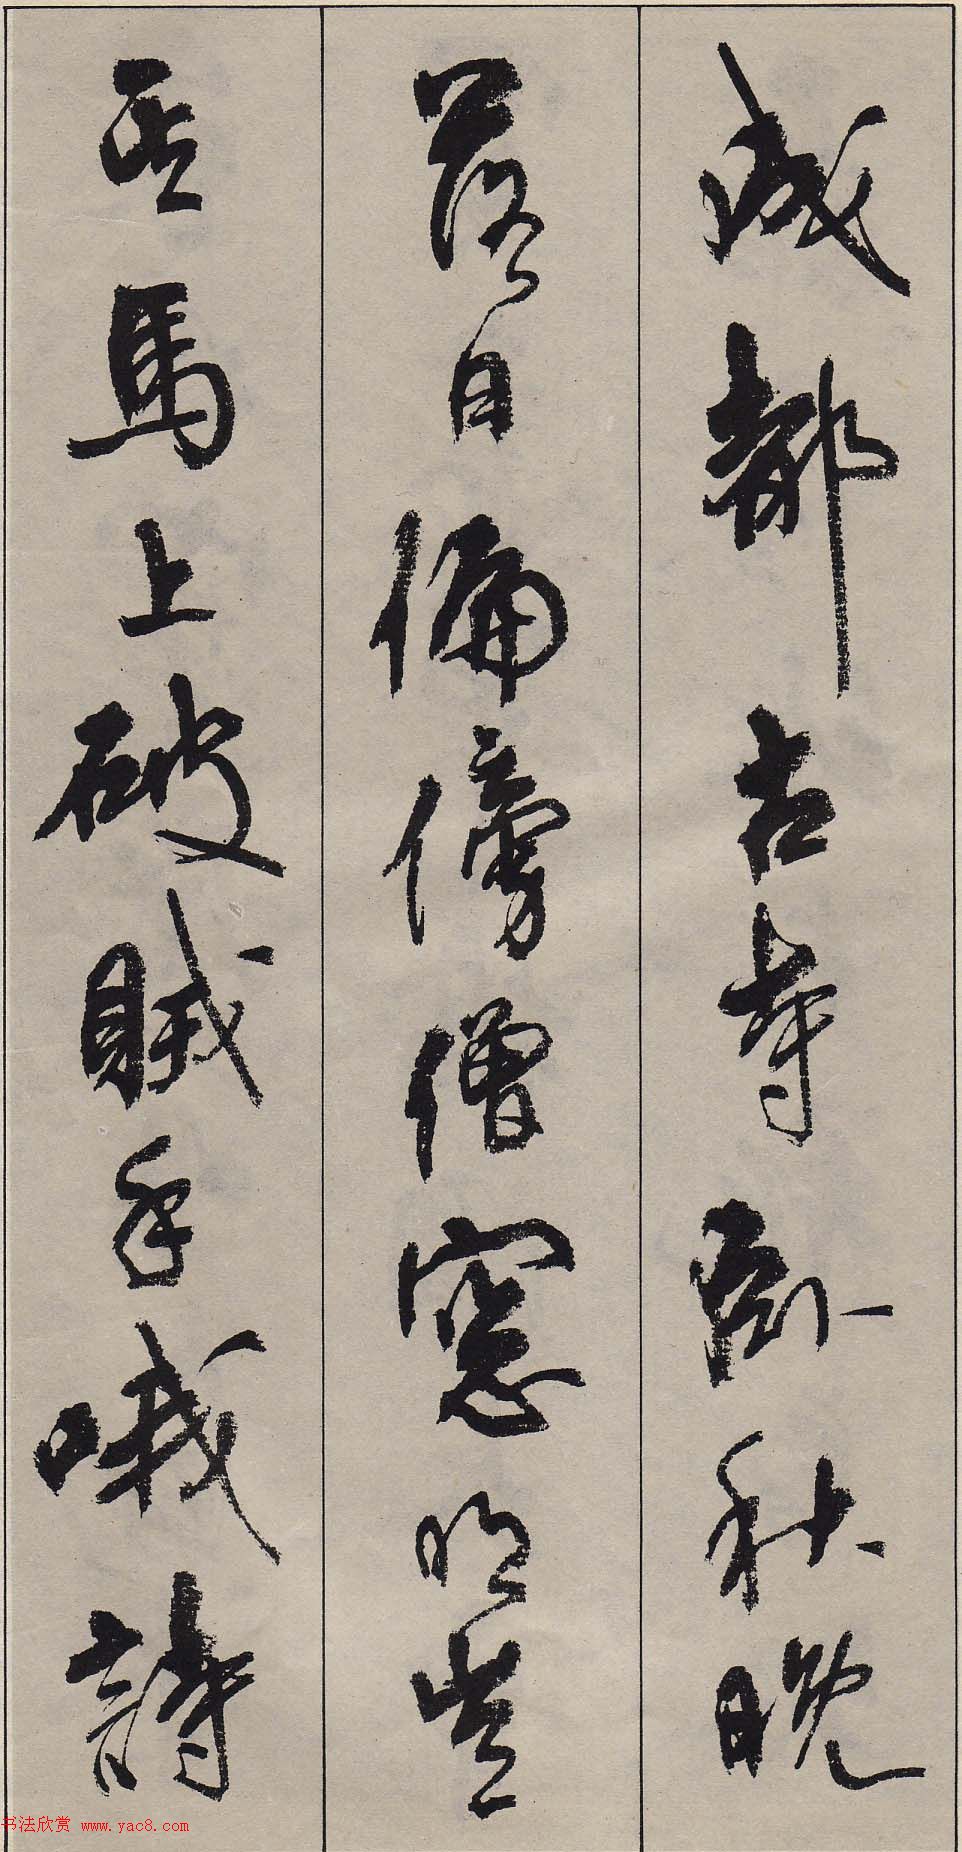 成都古寺卧秋晚
落日偏傍僧窗明豈
吾馬上破賊手哦詩
书法欣赏 www.yac8.com